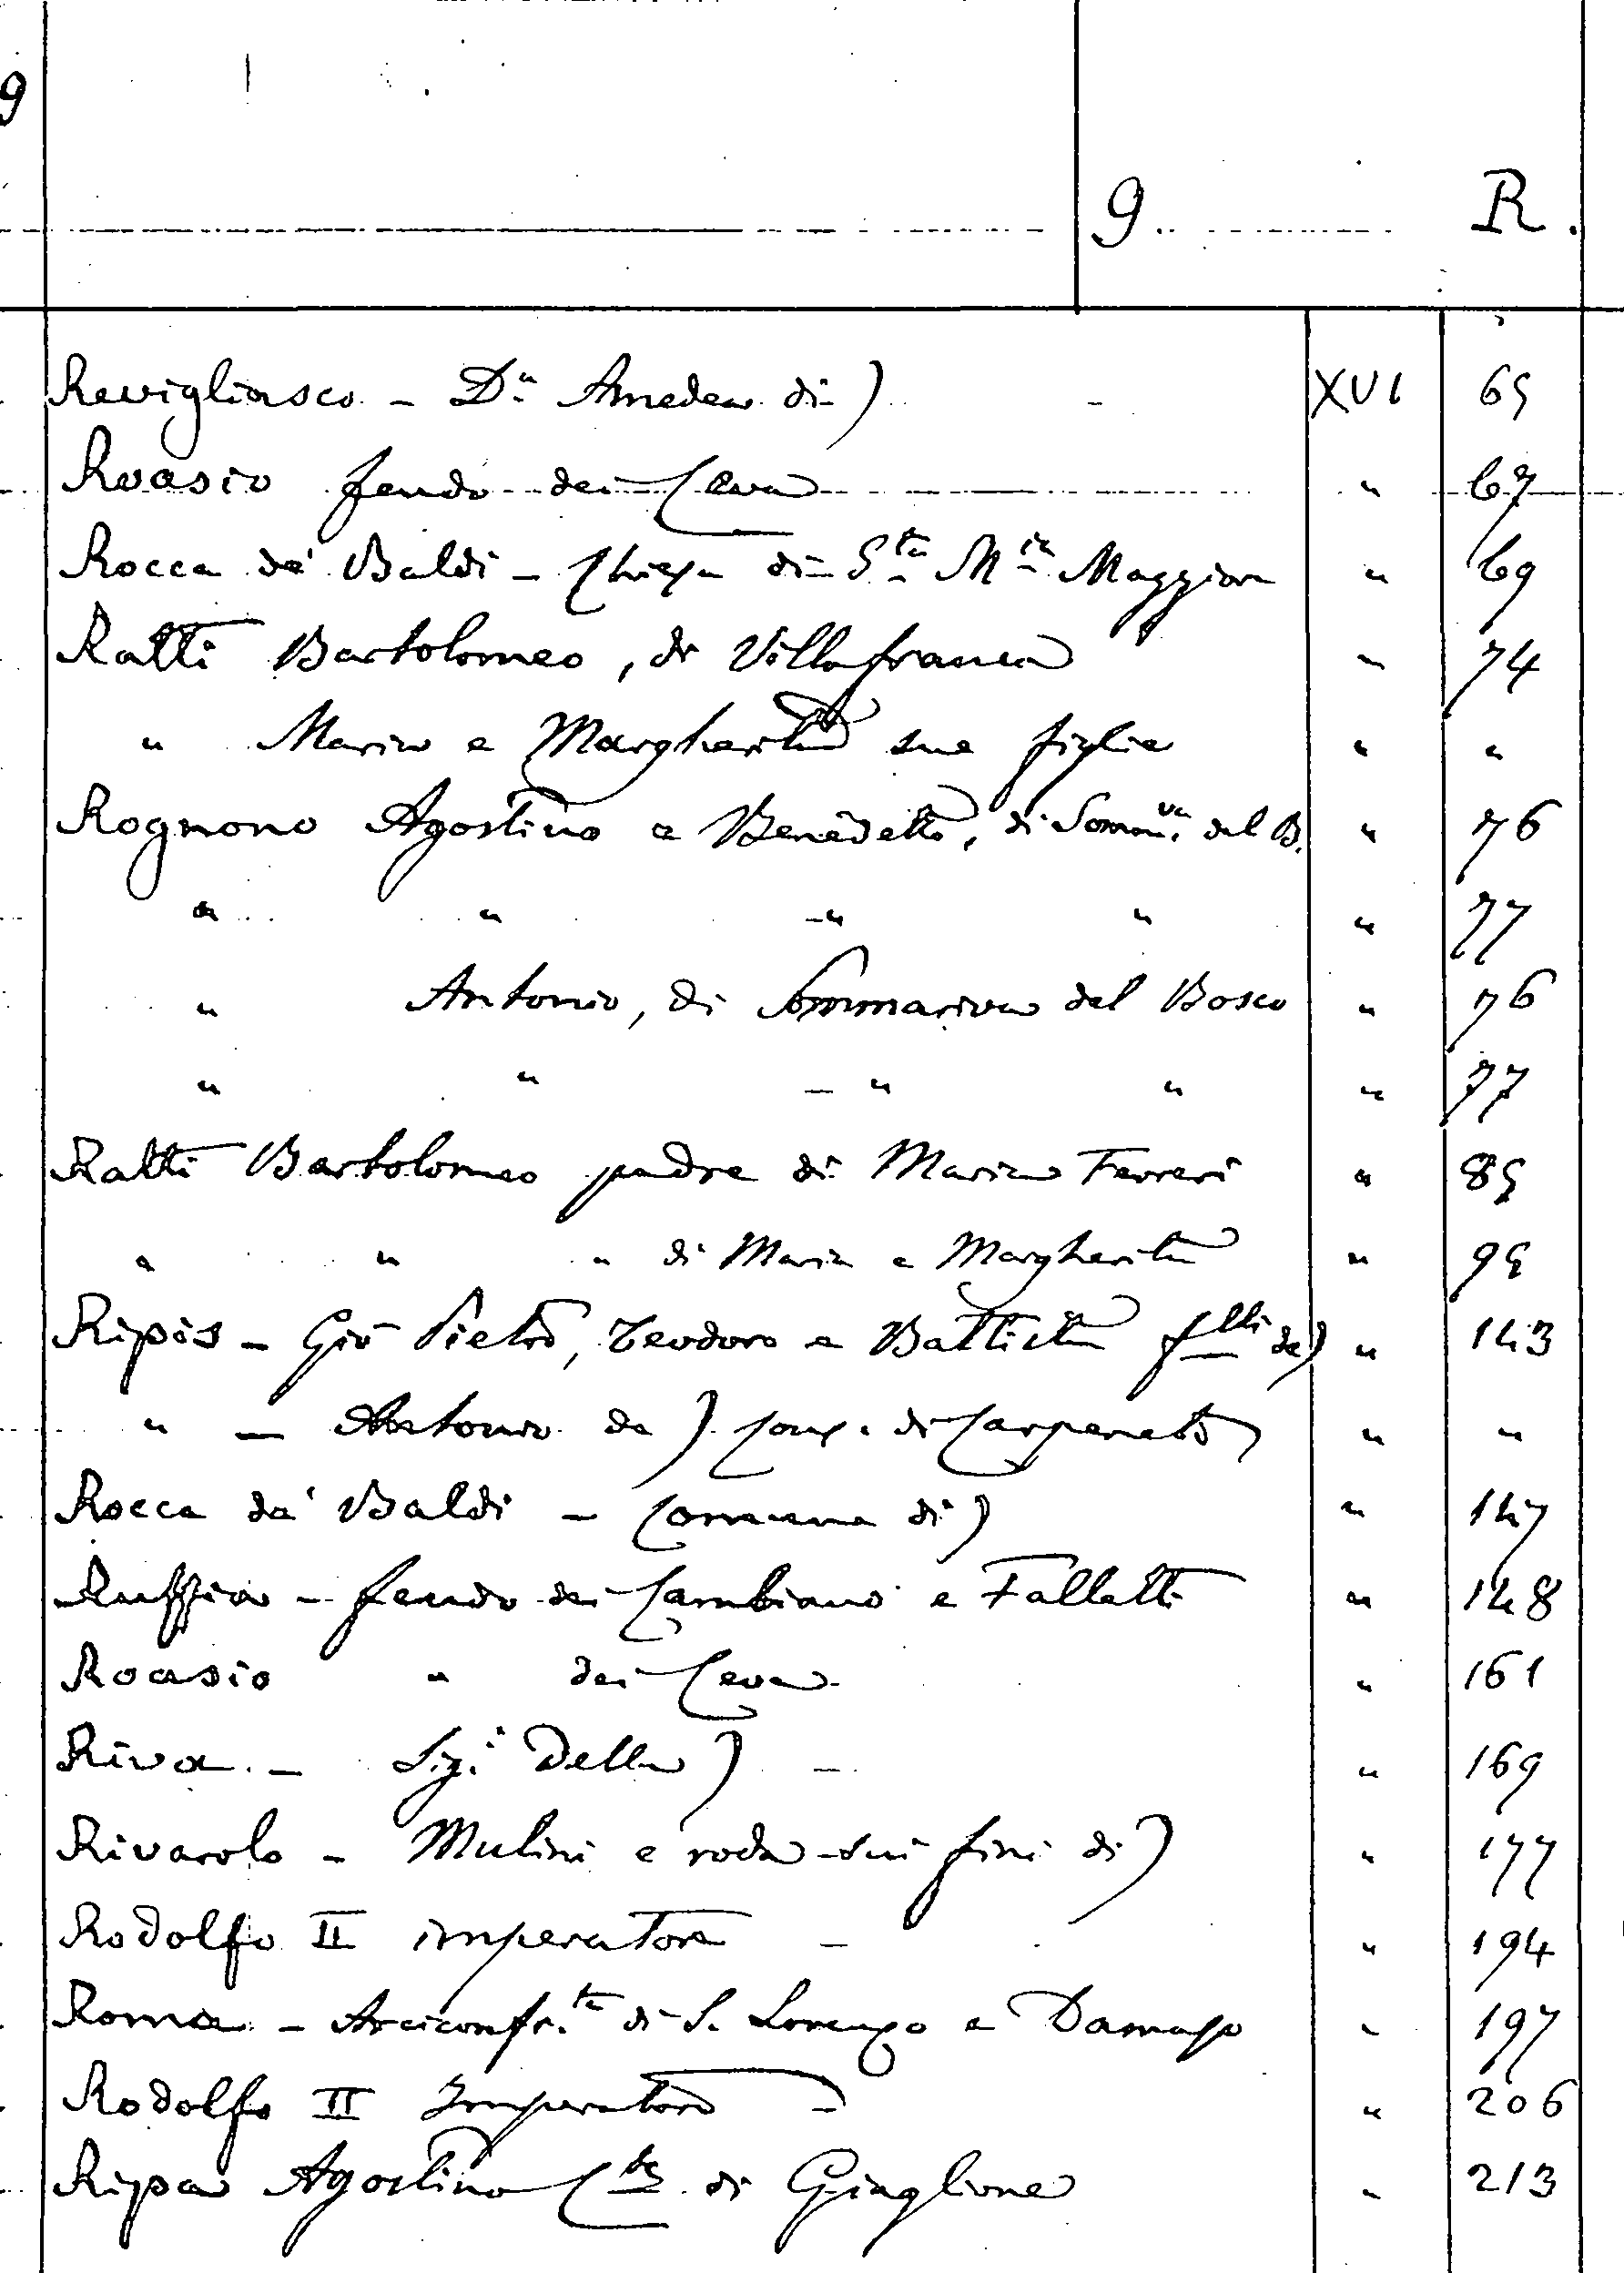 9
9. R.
Revigliasco - Dn Amedeo di) - XVI 65
Roasio feudo dei Ceva " 67
Rocca de' Baldi - Chiesa di Sta Mia Maggiore " 69
Ratti Bartolomeo, di Villafranca " 74
" Maria e Margherita sue figlie " "
Rognono Agostino e Benedetto, di Sommva del B. " 76
" " - " " " 77
" Antonio, di Sommariva del Bosco " 76
" " - " " " 77
Ratti Bartolomeo padre di Maria Ferreri " 85
" " " di Maria e Margherita " 95
Ripis - Gio Pietro, Teodoro e Battista flli de) " 143
" - Antonio de) Cons. di Carpeneto " "
Rocca de' Baldi - Comune di) " 147
Ruffia - feudo dei Cambiano e Falletti " 148
Roasio " dei Ceva " 161
Riva - Sig.i Della) - " 169
Rivarolo - Mulini e roda sui fini di) " 177
Rodolfo II imperatore - " 194
Roma - Arciconfr.ta di S. Lorenzo e Damaso " 197
Rodolfo II Imperatore - " 206
Ripa Agostino Cte di Giaglione " 213